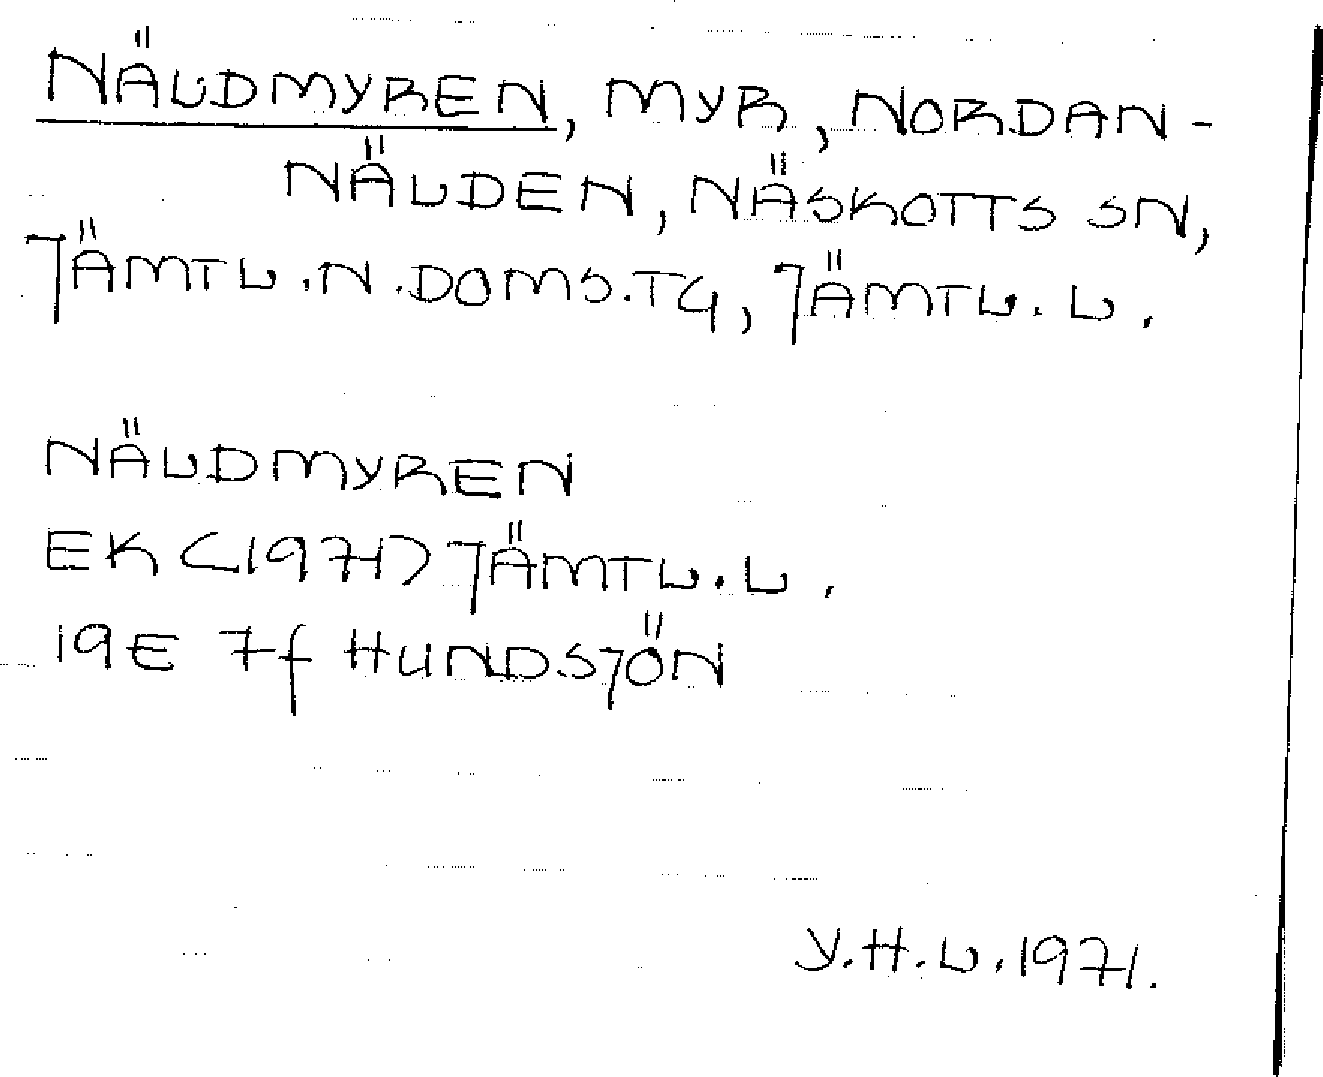 NÄLDMYREN, MYR, NORDAN-
NÄLDEN, NÄSKOTTS SN,
JÄMTL.N.DOMS.TG, JÄMTL.L.
NÄLDMYREN
EK (1971) JÄMTL.L.
19E 7f HUNDSJÖN
Y.H.L.1971.